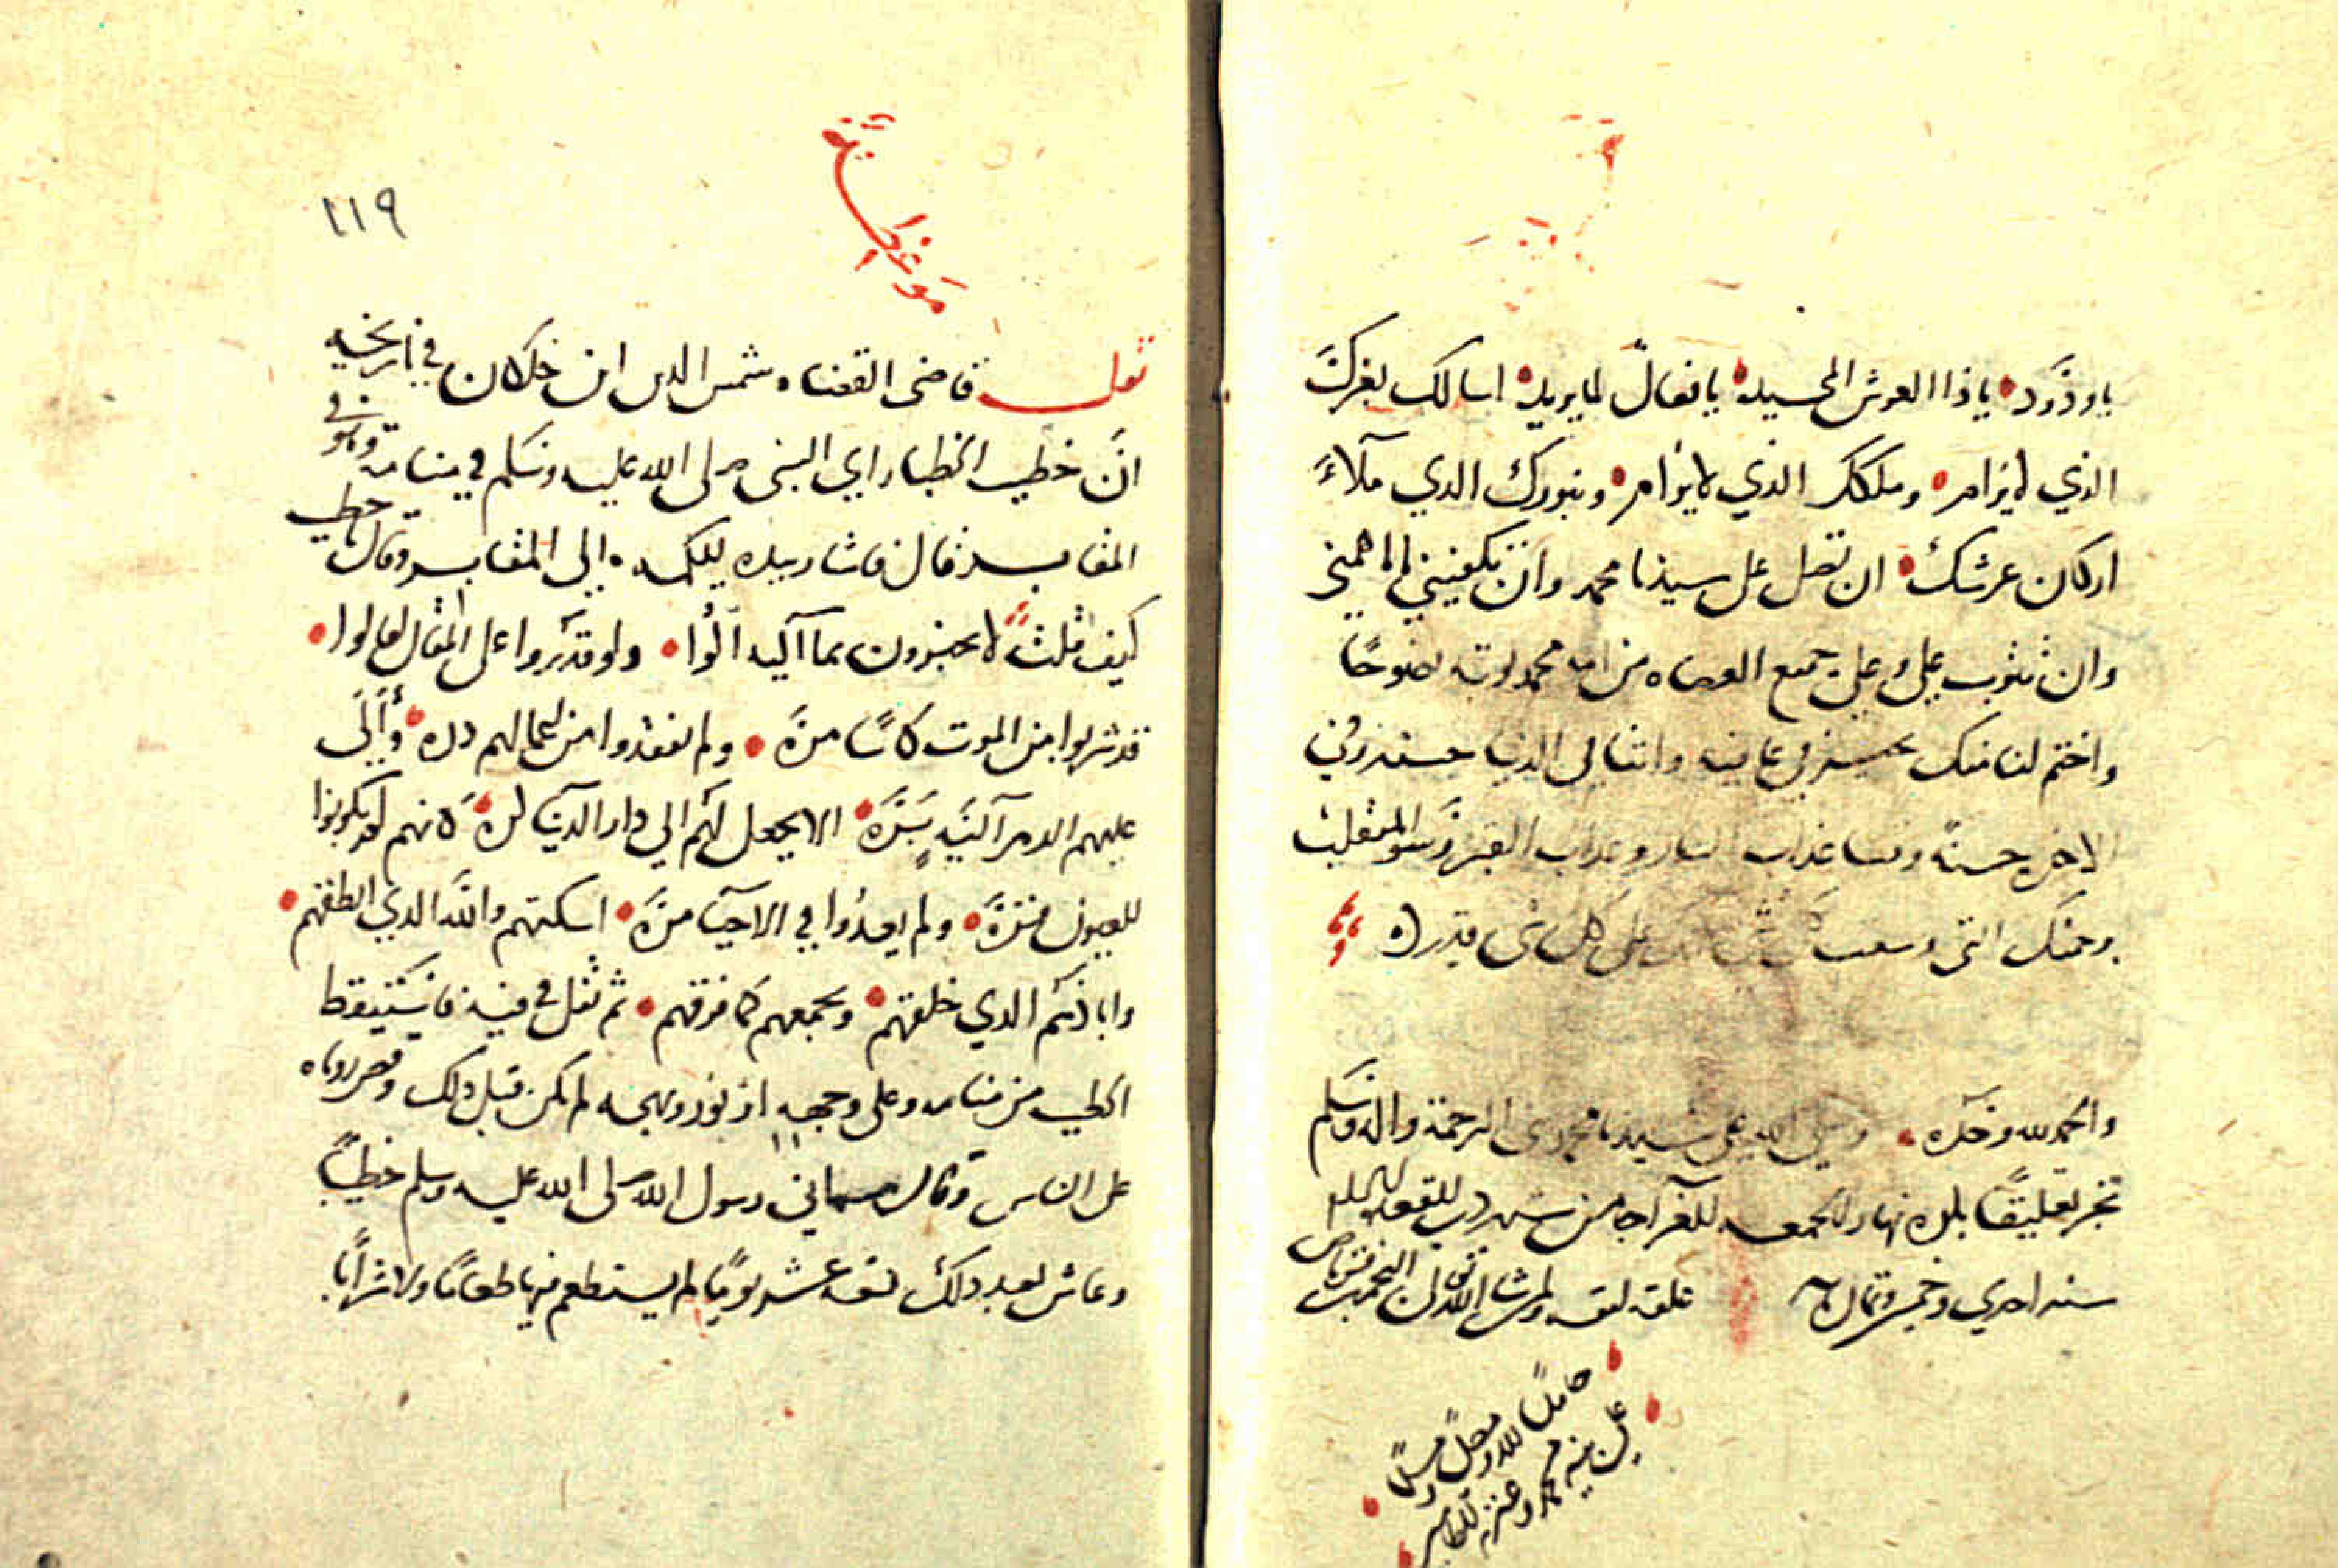 يا ودود يا ذا العرش المجيد يا فعال لما يريد اسالك بعزك
الذي لا يرام وملكك الذي لا يزام وبنورك الذي ملاء
اركان عرشك ان تصل على سيدنا محمد وان تكفيني ما اهمني
وان تتوب علي وعلى جميع العصاه من امة محمد توبة نصوحا
واختم لنا منك بخير في عافيه واتنا في الدنيا حسنة وفي
الاخرة حسنة وقنا عذاب النار وعذاب القبر وسو المنقلب
برحمتك التي وسعت على كل شي قدير
والحمد لله وحده وصلى الله على سيدنا محمد نبي الرحمة واله وسلم
نجز تعليقا بكرة نهار الجمعه الغراء من شهر ذي القعده
سنه احدي وخمس وثمان مايه علقه لنفسه ولمن شا الله
حامدا لله ومصل ومسلما
على نبيه محمد وعترته الطاهرين
١١٩
موعظة
نقل قاضي القضاه شمس الدين ابن خلكان في تاريخه
ان خطيب الخطبا راي النبي صلى الله عليه وسلم في منامه وهو في
المقابر قال فاشار بيده الى المقابر وقال يا خطيب
كيف قلت لا يخبرون بما اليه الوا ولو قدروا على المقال لقالوا
قد شربوا من الموت كاسا مرة ولم يفقدوا من اعمالهم ذره والى
عليهم الدهر الية برة الا يجعل لهم الي دار الدنيا كرة كانهم لم يكونوا
للعيون قرة ولم يعدوا في الاحيا مرة اسكتهم والله الذي انطقهم
وابادهم الذي خلقهم ويجمعهم كما فرقهم ثم تفل في فيه فاستيقظ
الخطيب من منامه وعلى وجهه اثر نور وبهجه لم يكن قبل ذلك وقص روياه
على الناس وقال سماني رسول الله صلى الله عليه وسلم خطيبا
وعاش بعد ذلك عشر يوما لم يستطعم فيها طعاما ولا شرابا